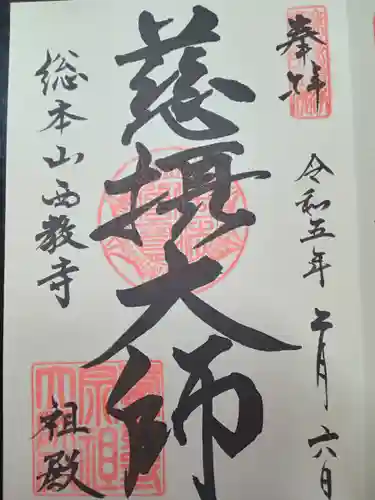 奉拝
令和五年 五月 六日
慈摂大師
総本山西教寺
祖殿